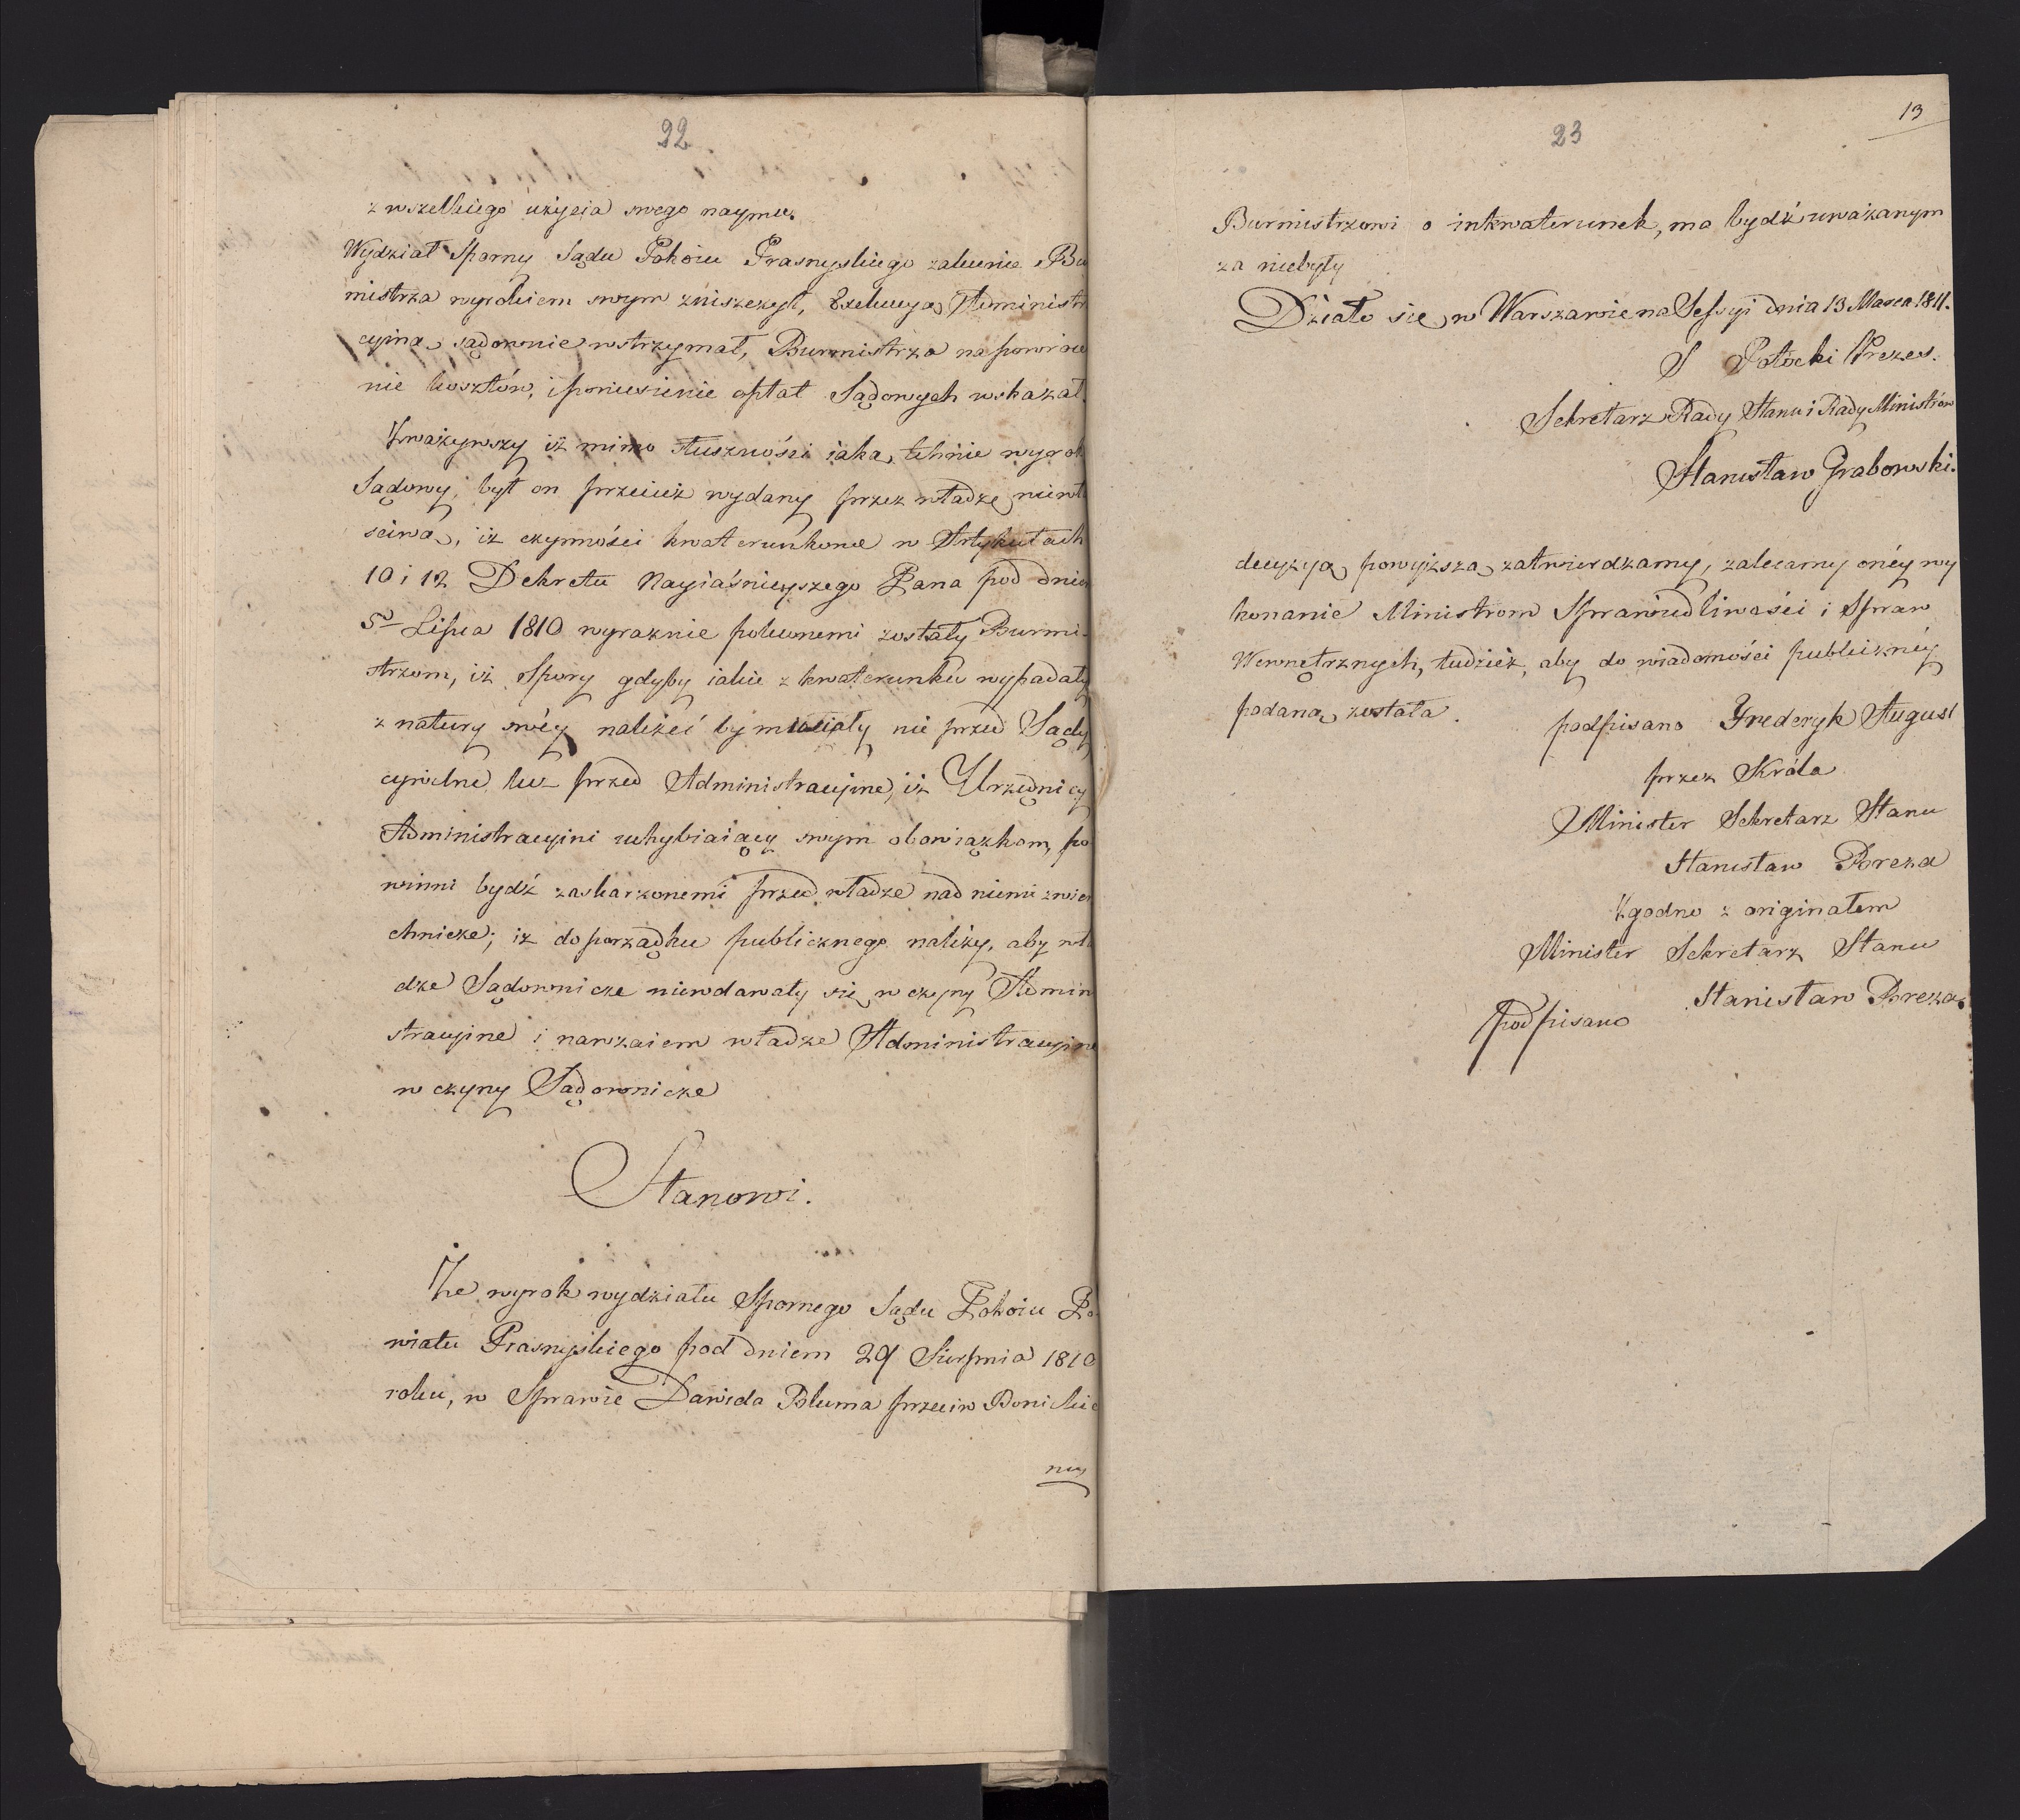 22
z wszelkiego użycia swego naymu.
Wydział Sporny Sądu Pokoiu Prasnyskiego zalecenie Bu
mistrza wyrokiem swym zniszczył, Exekucyą Administr
cyiną sądownie wstrzymał, Burmistrza na powróce
nie kosztów, i poniesienie opłat Sądowych wskazał.
Zważywszy iż mimo słuszności iaką tchnie wyrok
Sądowy, był on przecież wydany przez władzę niewł
ściwą, iż czynności kwaterunkowe w Artykułach
10 i 12 Dekretu Nayiaśnieyszego Pana pod dnie
5º Lipca 1810 wyraznie poleconemi zostały Burmi-
strzom, iż Spory gdyby iakie z kwaterunku wypadały
z natury swéy należeć by musiały nie przed Sądy
cywilne lecz przed Administracyine, iż Urzędnicy
Administracyini uchybiaiący swym obowiązkom, po
winni bydź zaskarzonemi przed władze nad niemi zwier
chnicze; iż do porządku publicznego należy, aby wła
dze Sądownicze niewdawały się w czyny Admin
stracyine i nawzaiem władze Administracyine
w czyny Sądownicze
Stanowi.
Że wyrok wydziału Spornego Sądu Pokoiu Po
wiatu Prasnyskiego pod dniem 29 Sierpnia 1810
roku, w Sprawie Dawida Bluma przeciw Bonickie
mu
13
23
Burmistrzowi o inkwaterunek, ma bydź uważanym
za niebyły
Działo się w Warszawie na Sessyi dnia 13 Marca 1811.
S Potocki Prezes.
Sekretarz Rady Stanu i Rady Ministrów
Stanisław Grabowski.
decyzyą powyższą zatwierdzamy, zalecamy onéy wy
konanie Ministrom Sprawiedliwości i Spraw
Wewnętrznych, tudzież, aby do wiadomości publicznéy
podaną została.
podpisano Fryderyk August
przez Króla
Minister Sekretarz Stanu
Stanisław Breza
Zgodno z originałem
Minister Sekretarz Stanu
podpisano Stanisław Breza.